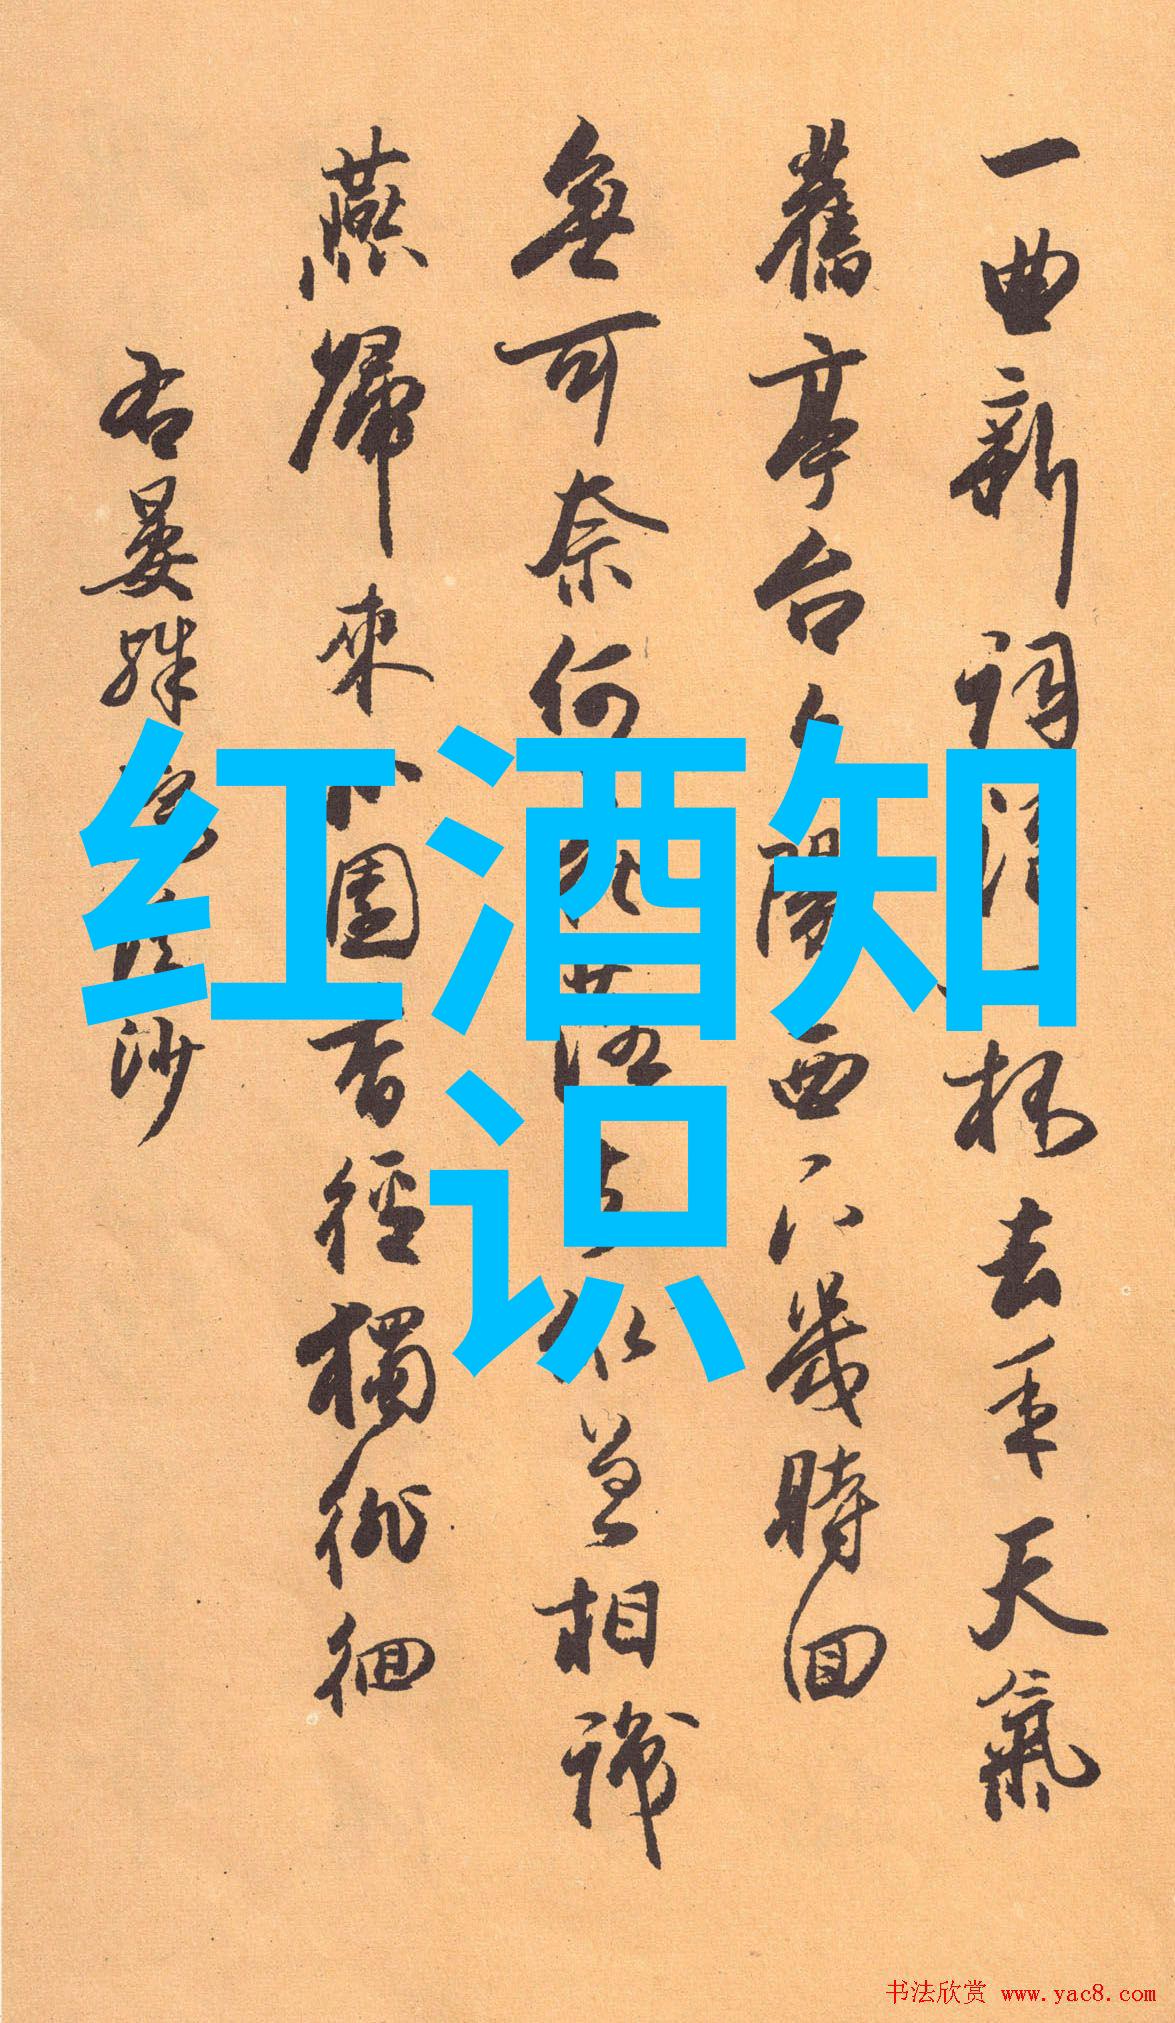 一曲新詞酒一杯去年天氣
舊亭台夕陽西下幾時回
無可奈何花落去似曾相識
燕歸來小園香徑獨徘徊
右晏殊浣溪沙
红酒知
识
书法欣赏 www.yac8.com